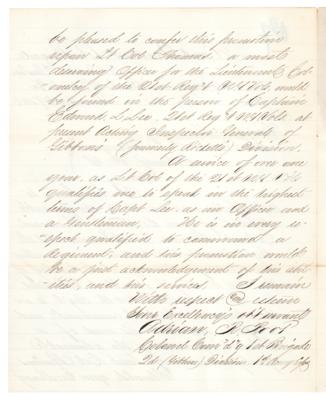 be pleased to confer this promotion
upon Lt Col Thomas a most
deserving Officer for the Lieutenant Col
onelcy of the 21st Reg't N.J. Vols, will
be found in the person of Captain
Edmund L. Lee, 21st Reg't N.J. Vols at
present Acting Inspector General of
Gibbons (formerly Division
A service of over one
year, as Lt Col of the 21st
qualifies me to speak in the highest
terms of Capt Lee, as an Officer and
a Gentleman, He is in every re-
spect, qualified to command a
Regiment, and his promotion would
be a just acknowledgement of his abil-
ities, and his services. I remain
With respect & esteem
Your Excellency's obt servant
Adrian, R Root
Colonel Com'd'g 1st Brigade
2d (Gibbons) Division 1st Army Corps